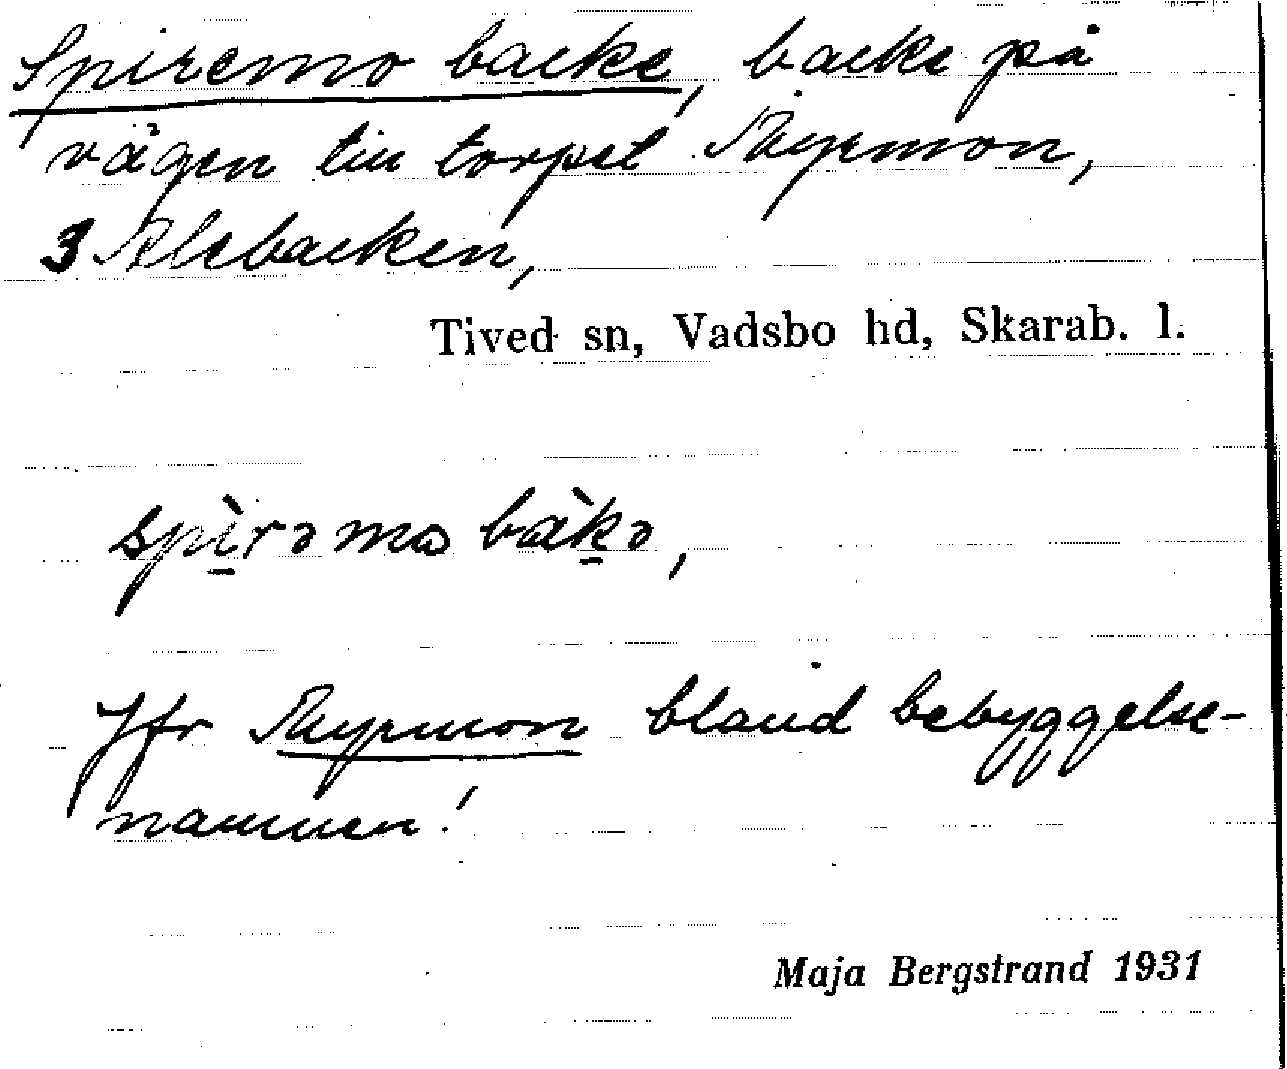 Spiremo backe, backe på
vägen till torpet Myrmon,
3 Älebacken,
Tived sn, Vadsbo hd, Skarab. l.
spìrəmo bàkə,
Jfr Myrmon bland bebyggelse-
namnen!
Maja Bergstrand 1931